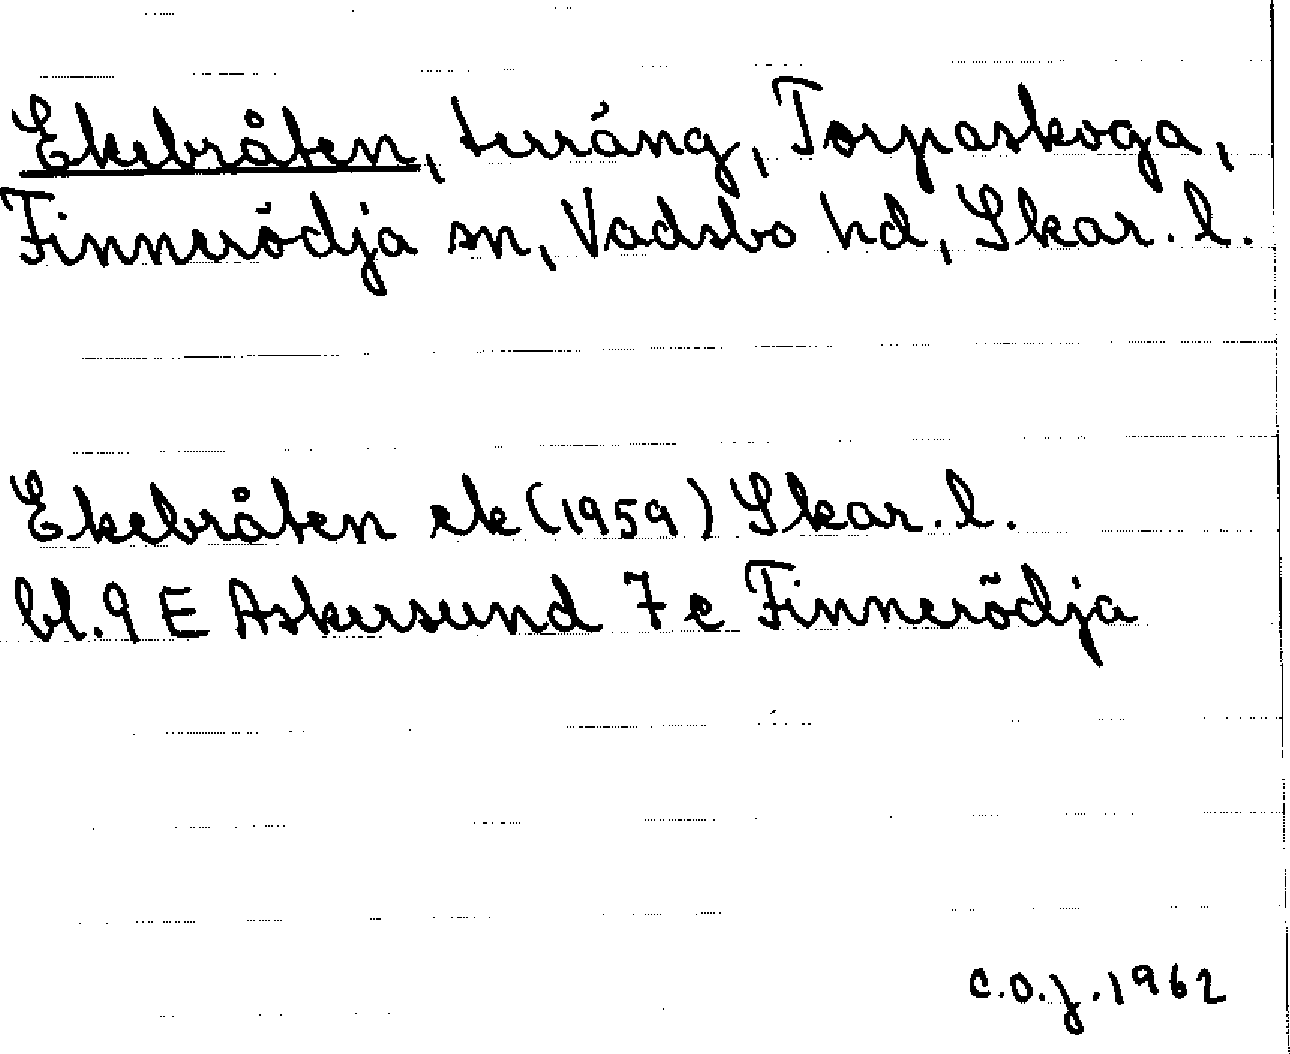 Ekebråten, terräng, Torpaskoga,
Finnerödja sn, Vadsbo hd, Skar. l.
Ekebråten ek (1959) Skar. l.
bl. 9 E Askersund 7 e Finnerödja
C.O.J. 1962